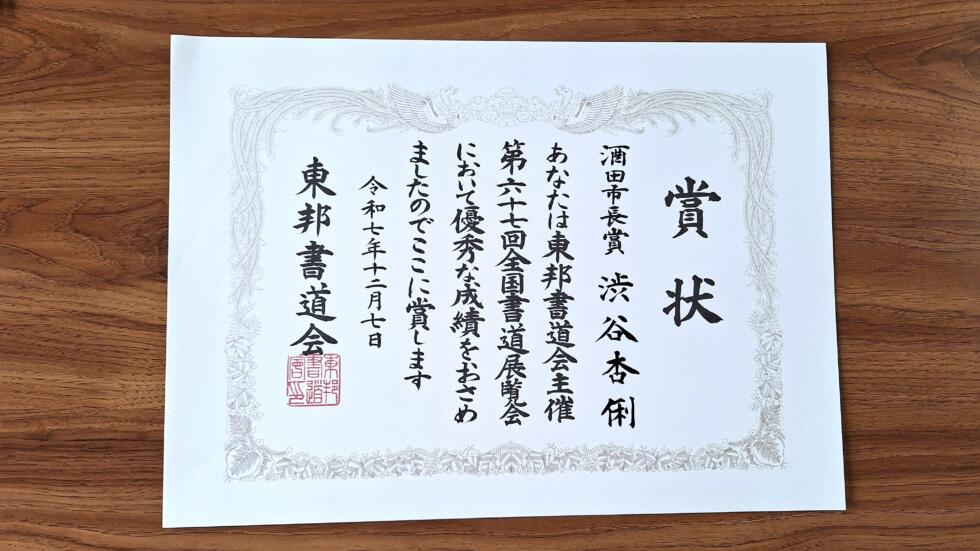 賞状
酒田市長賞 渋谷杏俐
あなたは東邦書道会主催
第六十七回全国書道展覧会
において優秀な成績をおさめ
ましたのでここに賞します
令和七年十二月七日
東邦書道会
東邦書道会印